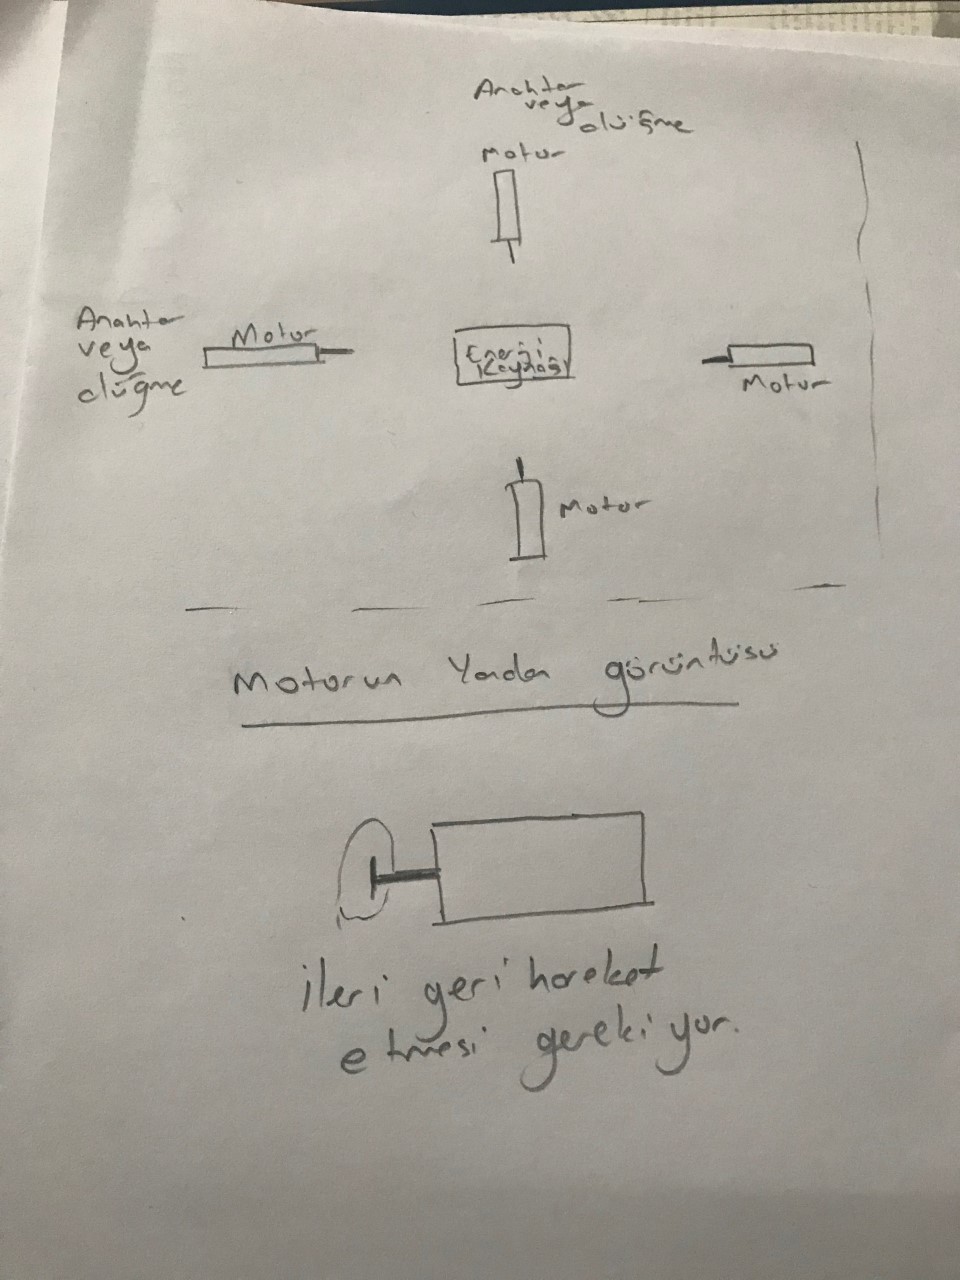 Anahtar
veya
düğme
Motor
Anahtar
veya
düğme
Motor
Enerji
Kaynağı
Motor
Motor
Motorun Yandan görüntüsü
ileri geri hareket
etmesi gerekiyor.